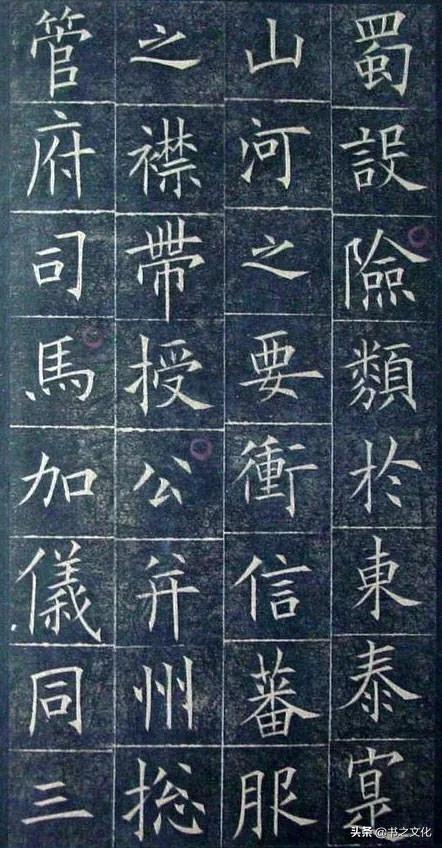 蜀設險類於東泰寔
山河之要衝信蕃服
之襟帶授公并州捴
管府司馬加儀同三
头条 @书之文化